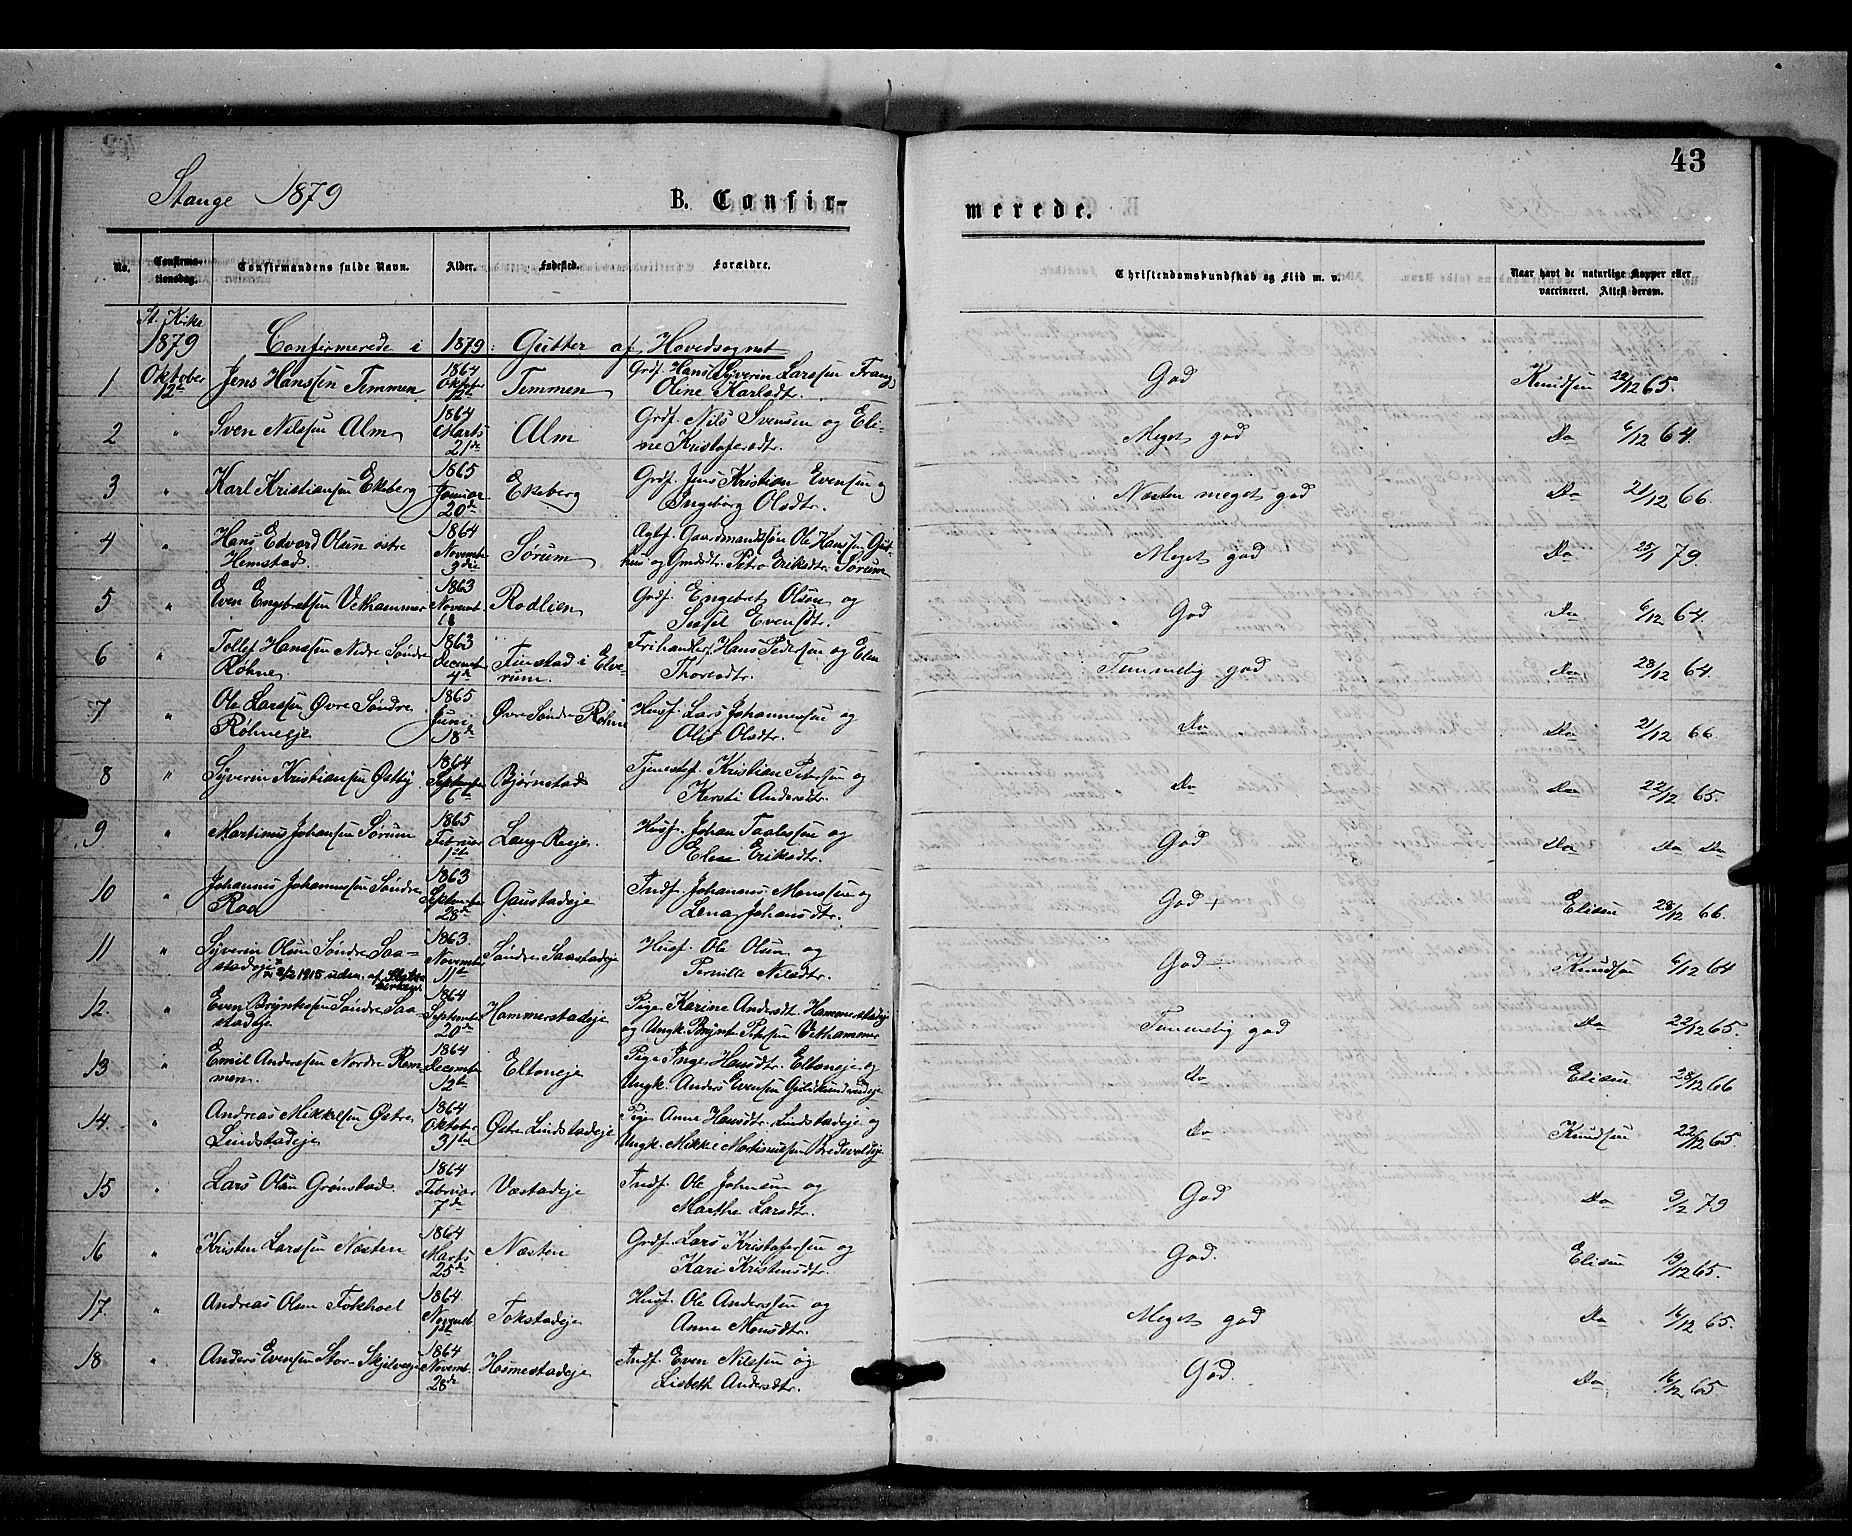 43
Stange 1879
B. Confir-
merede.
No.
Confirma-
tionsdag.
Confirmandens fulde Navn.
Alder.
Fødested.
Forældre.
Christendomskundskab og Flid m. v.
Naar havt de naturlige Kopper eller
vaccineret. Attest derom.
St. Kirke
1879 Confirmerede i 1879: Gutter af Hovedsognet
1 Oktober 12te Jens Hanssen Temmen 1864 Oktobr 12te Temmen Grdf. Hans Syverin Larssen Frang, Oline Karlsdtr. God Knudsen 22/12 65.
2 " Sven Nilssen Alm 1864 Marts 21de Alm Grdf. Nils Svensen og Eli-
ne Kristofersdtr. Meget god Do 6/12 64.
3 " Karl Kristiansen Ekeberg 1865 Januar 20de Ekeberg Grdf. Jens Kristian Evensen og
Ingeborg Olsdtr. Næsten meget god Do 21/12 66.
4 " Hans Edvard Olsen østre
Hemstad. 1864 Novembr 9die Sørum Agtf. Gaardmandssøn Ole Hanssen Gut-
hus og Gmdsdtr. Petra Eriksdtr. Sørum Meget god Do 25/1 79.
5 " Even Engebretsen Vethammer 1863 Novembr 18 Rodlien Grdf. Engebret Olsen og
Sissel Evensdtr. God Do 6/12 64.
6 " Tollef Hanssen Nedre Søndre
Røhne 1863 Decembr 4de Finstad i Elve-
rum. Frihandler Hans Pedersen og Elen
Thoresdtr. Temmelig god Do 28/12 64.
7 " Ole Larssen Øvre Søndre
Røhneeje 1865 Juni 18de Øvre Søndre Røhne Husf. Lars Johannessen og
Olia Olsdtr. Do Do 21/12 66.
8 " Syverin Kristiansen Østby 1864 September 6te Bjørnstad Tjenestef. Kristian Petersen og
Kersti Andersdtr. Do Do 22/12 65.
9 " Martinus Johansen Sørum 1865 Februar 1ste Lang-Reeje. Husf. Johan Taalessen og
Elen Eriksdtr. God Do Do Do
10 " Johannes Johannessen Søndre
Roa 1863 September 28de Gaustadeje Indf. Johannes Monssen og
Lena Johansdtr. God Elisen 28/12 66.
11 " Syverin Olsen Søndre Saa-
stadeje 1863 November 11te Søndre Saastadeje Husf. Ole Olsen og
Pernille Nilsdtr. God Knudsen 6/12 64
1915 udm. af Stats-
kirken.
12. " Even Bryntesen Søndre Saa-
stadeje 1864 September 20de Hommerstadeje Pige Karine Andersdtr. Hammerstadeje
og Ungk. Brynte Petersen Vethammer Temmelig god Do 22/12 65.
13 " Emil Anderssen Nordre Rem-
men. 1864 December 12te Eltoneje Pige Inge Hansdtr. Eltoneje og
Ungk. Anders Evensen Do Elisen 28/12 66
14. " Andreas Mikkelsen Østre
Lindstadeje 1864 Oktober 31te Østre Lindstadeje Pige Anne Hansdtr. Lindstadeje og
Ungk. Mikkel Martinussen Bredevoldeje Do Knudsen 22/12 65
15 " Lars Olsen Grønstad. 1864 Februar 7de Væstadeje Indf. Ole Johnsen og
Marthe Larsdtr. God Do 9/2 79
16 " Kristen Larssen Næsten 1864 Marts 25de Næsten Grdf. Lars Kristofersen og
Kari Kristensdtr. God. Elisen 19/12 65.
17. " Andreas Olsen Fokhoel 1864 Novembr 1ste Fokstadeje Husf. Ole Anderssen og
Anne Monsdtr. Meget god Do 16/12 65.
18 " Anders Evensen Stor-Skjelveeje 1864 Novemb. 28de Homestadeje Indf. Even Nilssen og
Lisbeth Andersdtr. God. Do 16/12 65